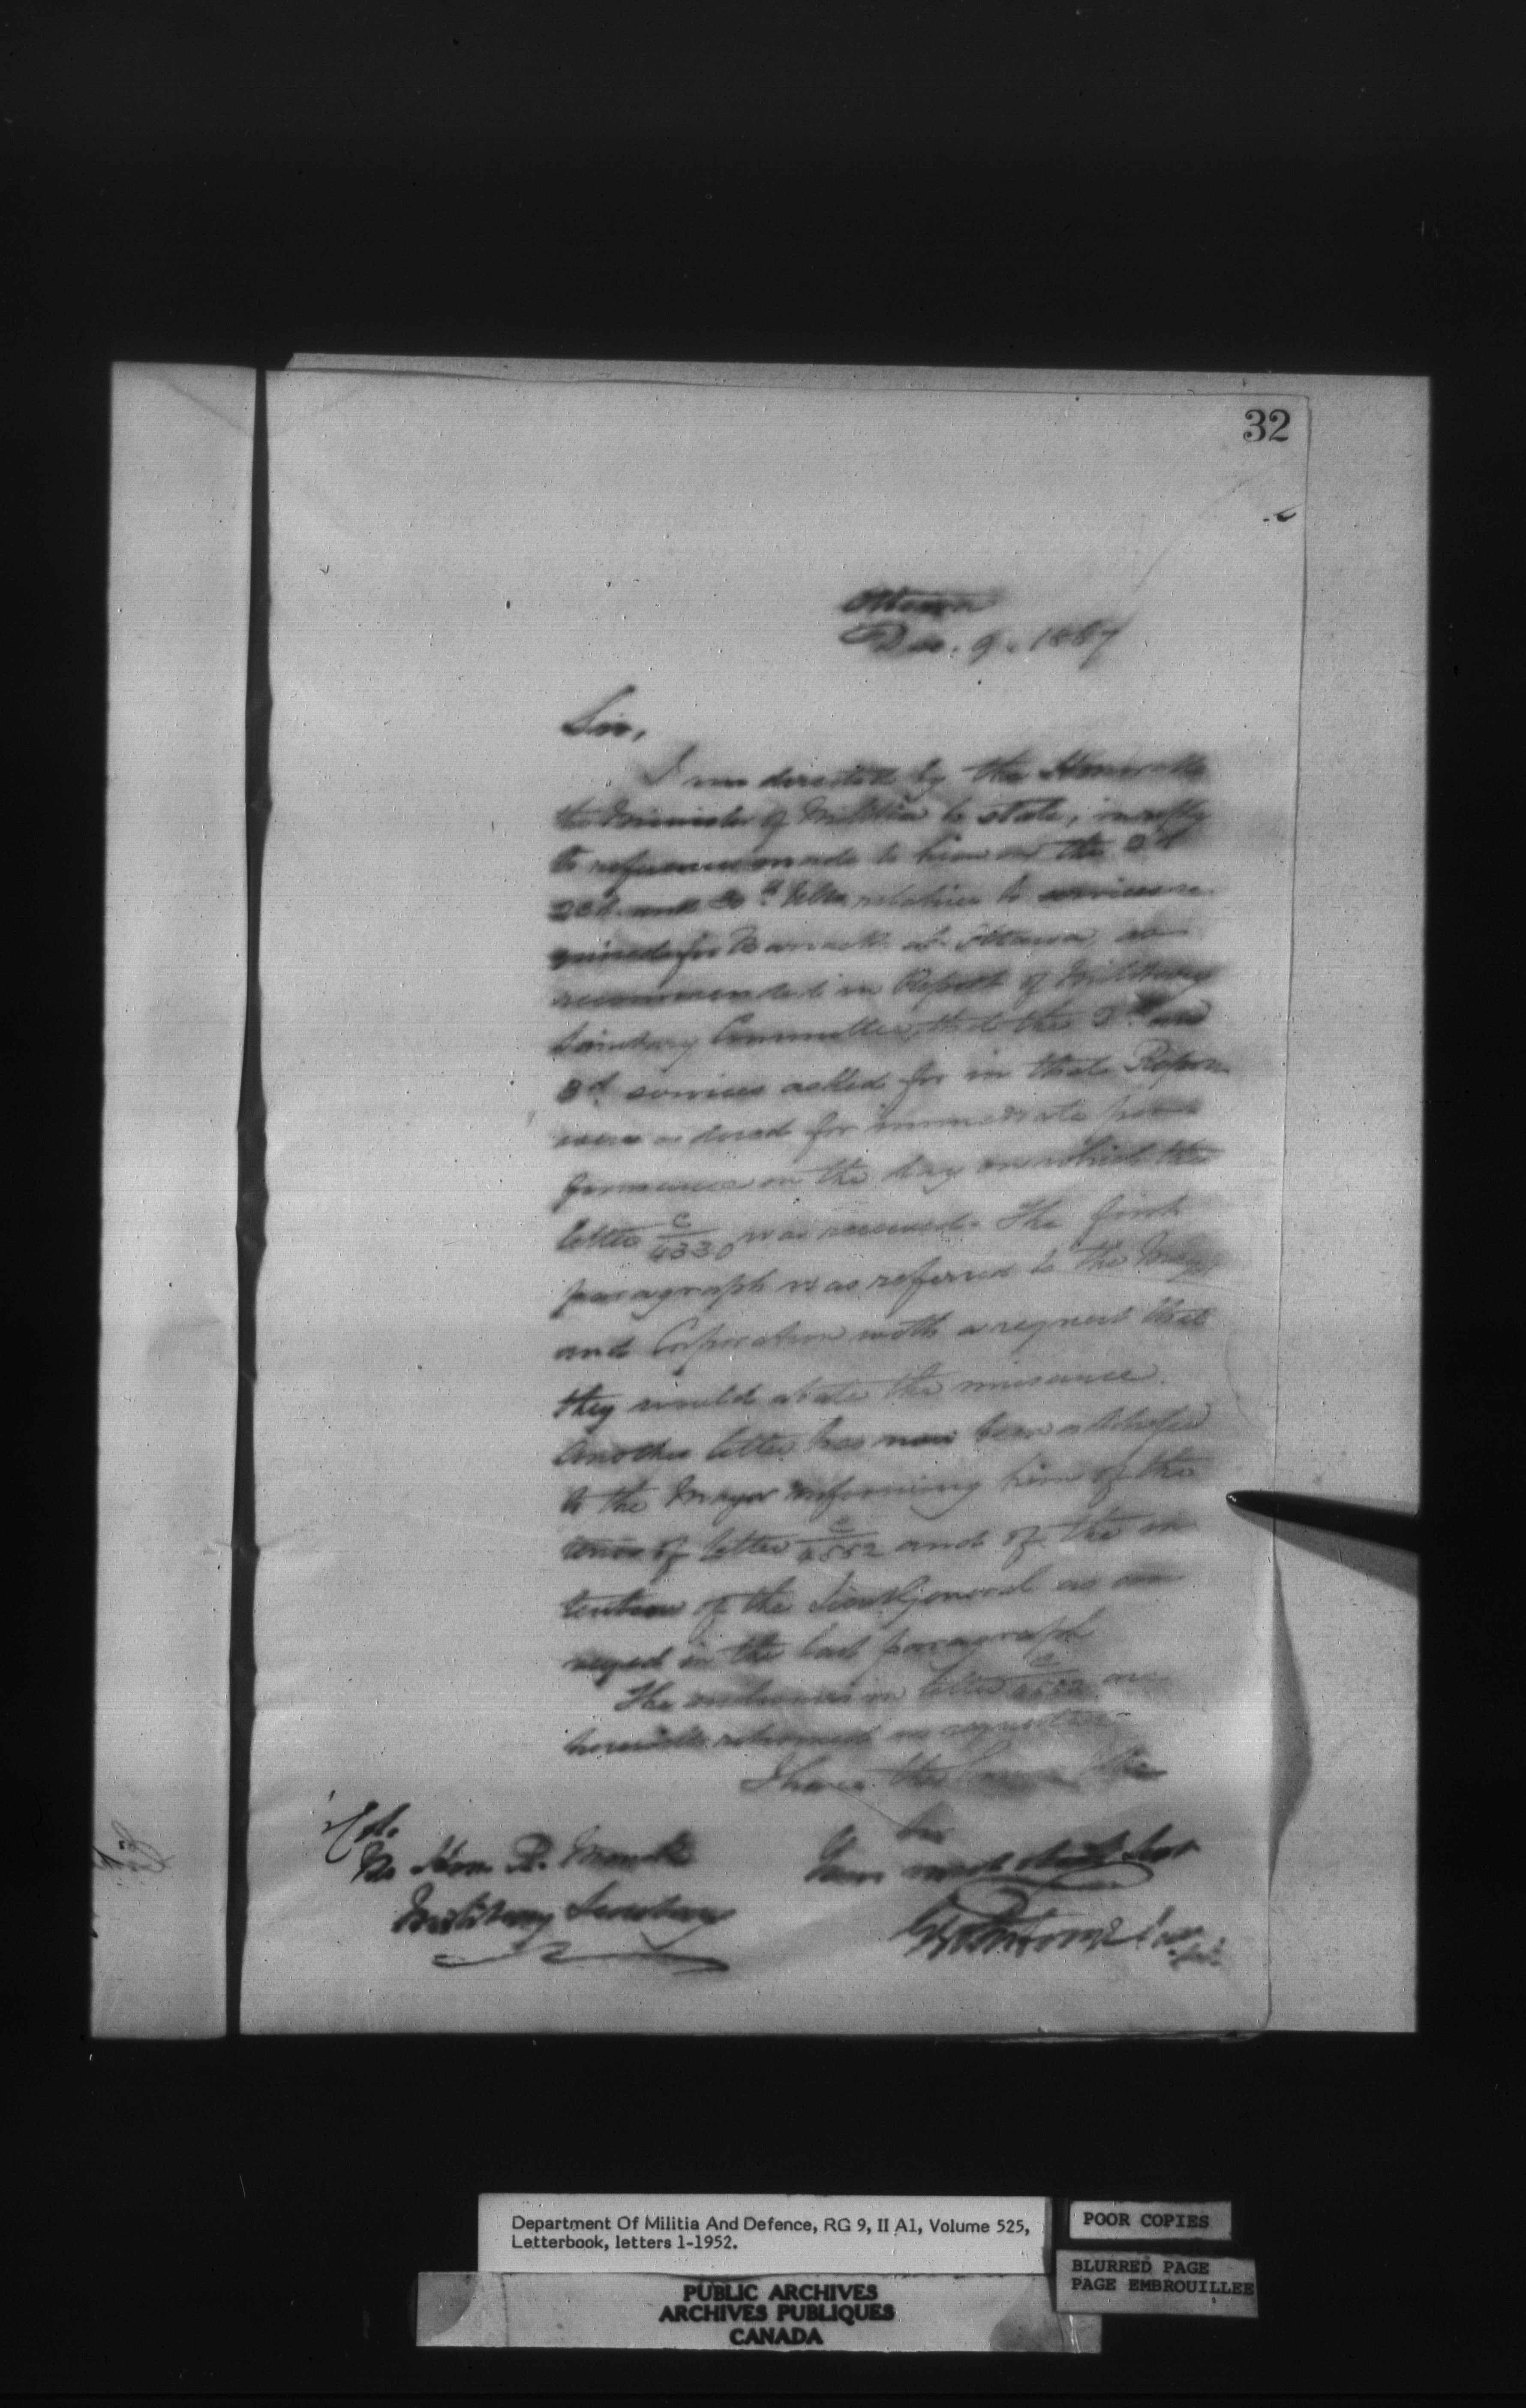 32
Ottawa
Dec. 9. 1867
Sir,
I am directed by the Honorable
the Minister of Militia to state, in reply
to references made to him on the 2d
and relative to services re
quired for Barracks at Ottawa, as
recommended in Report of Military
Sanitary Committee, that the 2nd and
3d services asked for in that Report
were ordered for immediate per
formance on the day on which the
letter C/4330 was received. The first
paragraph was referred to the Mayor
and Corporation with a request that
they would abate the nuisance.
Another letter has now been addressed
to the Mayor informing him of the
tenor of letter C/4552 and of the in
tention of the Lieut General as con
veyed in the last paragraph
The enclosures in letter C/4552 are
herewith returned as requested
I have the honor to be
Sir
Your most obedt Servt
Col.
The Hon. R. Monck
Military Secretary
Department Of Militia And Defence, RG 9, II A1, Volume 525,
Letterbook, letters 1-1952.
POOR COPIES
BLURRED PAGE
PAGE EMBROUILLEE
PUBLIC ARCHIVES
ARCHIVES PUBLIQUES
CANADA